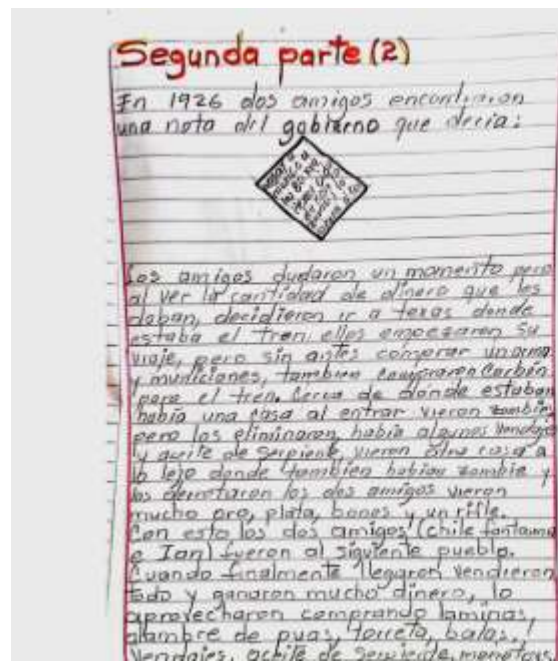 Segunda parte (2)
En 1926 dos amigos encontraron
una nota del gobierno que decia:
Los amigos dudaron un momento pero
al ver la cantidad de dinero que les
daban, decidieron ir a texas donde
estaba el tren, ellos empezaron su
viaje, pero sin antes comprar un arma
y municiones, tambien compraron Carbón
para el tren. Cerca de donde estaban
había una casa al entrar vieron zombies
pero los eliminaron, había algunos Vendajes
y aceite de serpiente, vieron otra casa a
lo lejo donde tambien habian zombie y
los derrotaron los dos amigos vieron
mucho oro, plata, bonos y un rifle.
Con esto los dos amigos (chile fantasma
e Ian) fueron al siguiente pueblo.
Cuando finalmente llegaron vendieron
todo y ganaron mucho dinero, lo
aprovecharon comprando laminas,
alambre de puas, torreta, balas,
Vendajes, aceite de serpiente,